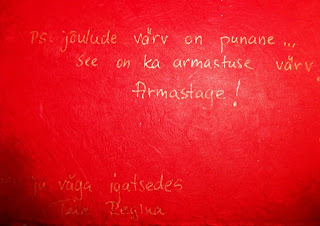 PS. jõulude värv on punane...
see on ka armastuse värv.
Armastage!
... ja väga igatsedes
Teie